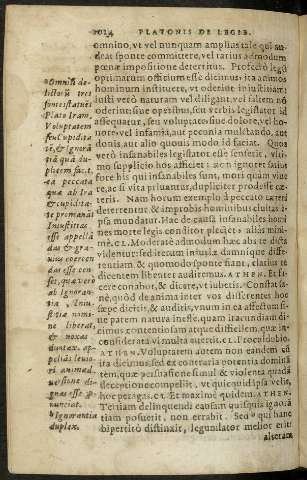 PLATONIS DE LEGIB.
omnino, vt vel nunquam amplius tale qui au-
deat sponte committere, vel rarius admodum
pœnæ impositione deterritus. Profectò legũ
optimarum officium esse dicimus, ita animos
hominum instituere, vt oderint iniustitiam:
iusti verò naturam vel diligant, vel saltem nõ
oderint: siue operibus, seu verbis legislator id
assequatur, seu voluptate, siue dolore, vel ho-
nore, vel infamia, aut pecunia mulctando, aut
donis, aut alio quouis modo id faciat. Quos
verò insanabiles legislator esse senserit, vlti-
mo supplicio hos afficiet: ac si ignoret satius
fore his qui insanabiles sunt, mori quàm viue
re, ac si vita priuantur, dupliciter prodesse cæ-
teris. Nam horum exemplo à peccato cæteri
deterrentur, & improbis hominibus ciuitas i-
psa mundatur. Hac de causa insanabiles homi
nes morte legis conditor plectet: alias mini-
mè. CL. Moderatè admodum hæc abs te dicta
videntur: sed iterum iniustæ damnique diffe-
rentiam & quomodo sponte fiant, clarius te
dicentem libenter audiremus. ATHEN. Effi-
cere conabor, & dicere, vt iubetis. Constat sa-
nè, quòd de anima inter vos differentes hoc
sæpe dicitis, & auditis, vnum in ea affectum si-
ue partem natura inesse, quam iracundiam di-
cimus contentiosam atque difficilem, quæ in-
considerata vi multa euertit. CL. Procul dubio.
ATHEN. Voluptatem autem non eandem cũ
ira dicimus, sed ex contraria potentia domina
tem, quæ persuasione simul & violenta quadã
deceptione compellit, vt quicquid ipsa velit,
hoc peragas. CL. Et maximè quidem. ATHEN.
Tertiam delinquendi causam quisquis ignorã
tiam posuerit, non errabit. Sed qui hanc
bipertitò distinxit, legumlator melior erit:
alteram
Omnis de-
lictorũ tres
fontes statuit
Plato Iram,
Voluptatem
seu Cupidita
tẽ, & Ignorã
tiã
ea peccata
quæ ab Ira
& cupidita-
te promanãt
Iniustitias
esse appellã
das & gra-
uius coercen
das esse cen-
set, quæ verò
ab Ignoran-
tia
stitiæ nomi-
ne liberat,
& noxas
duntaxat ap-
pellãs
Ignorantia
duplex.